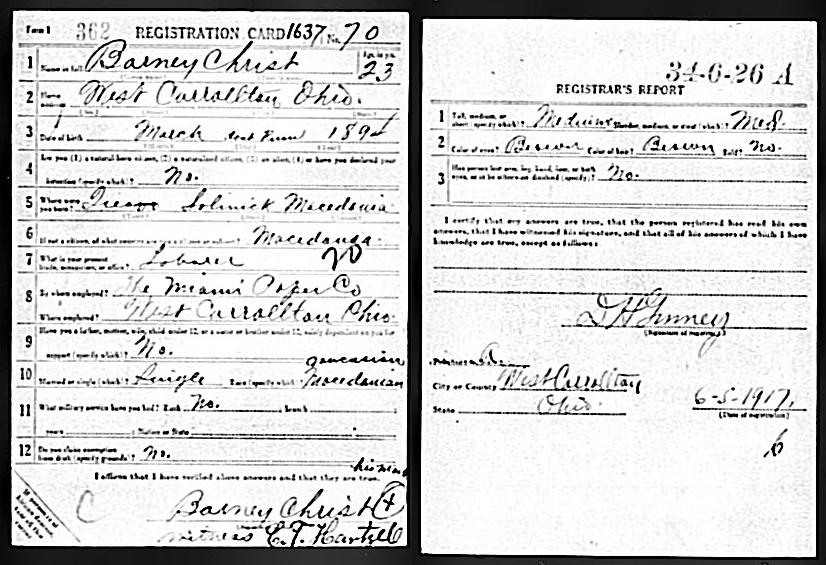 Form 1 362 REGISTRATION CARD 1637 No. 70
1 Name in full Barney Christ Age, in yrs. 23
2 Home address West Carrollton Ohio.
3 Date of birth March 189
4 Are you (1) a natural-born citizen, (2) a naturalized citizen, (3) an alien, (4) or have you declared your
intention (specify which)? No.
5 Where were you born? Macedonia
6 If not a citizen, of what country are you a citizen or subject? Macedonia.
7 What is your present trade, occupation, or office? Laborer 20
8 By whom employed? The Miami Paper Co
Where employed? West Carrollton Ohio.
9 Have you a father, mother, wife, child under 12, or a sister or brother under 12, solely dependent on you for
support (specify which)? No.
caucasian
10 Married or single (which)? Single Race (specify which)? Macedonian
11 What military service have you had? Rank No. ; branch
years ; Nation or State
12 Do you claim exemption from draft (specify grounds)? No.
his mark
I affirm that I have verified above answers and that they are true.
Barney Christ (+)
witness E. T. Hartzell
C
34-6-26 A
REGISTRAR'S REPORT
1 Tall, medium, or short (specify which)? Medium Slender, medium, or stout (which)? Med.
2 Color of eyes? Brown Color of hair? Brown Bald? No.
3 Has person lost arm, leg, hand, foot, or both eyes, or is he otherwise disabled (specify)? No.
I certify that my answers are true, that the person registered has read his own
answers, that I have witnessed his signature, and that all of his answers of which I have
knowledge are true, except as follows:
(Signature of registrar)
Precinct
City or County West Carrollton
State Ohio 6-5-1917.
(Date of registration)
6